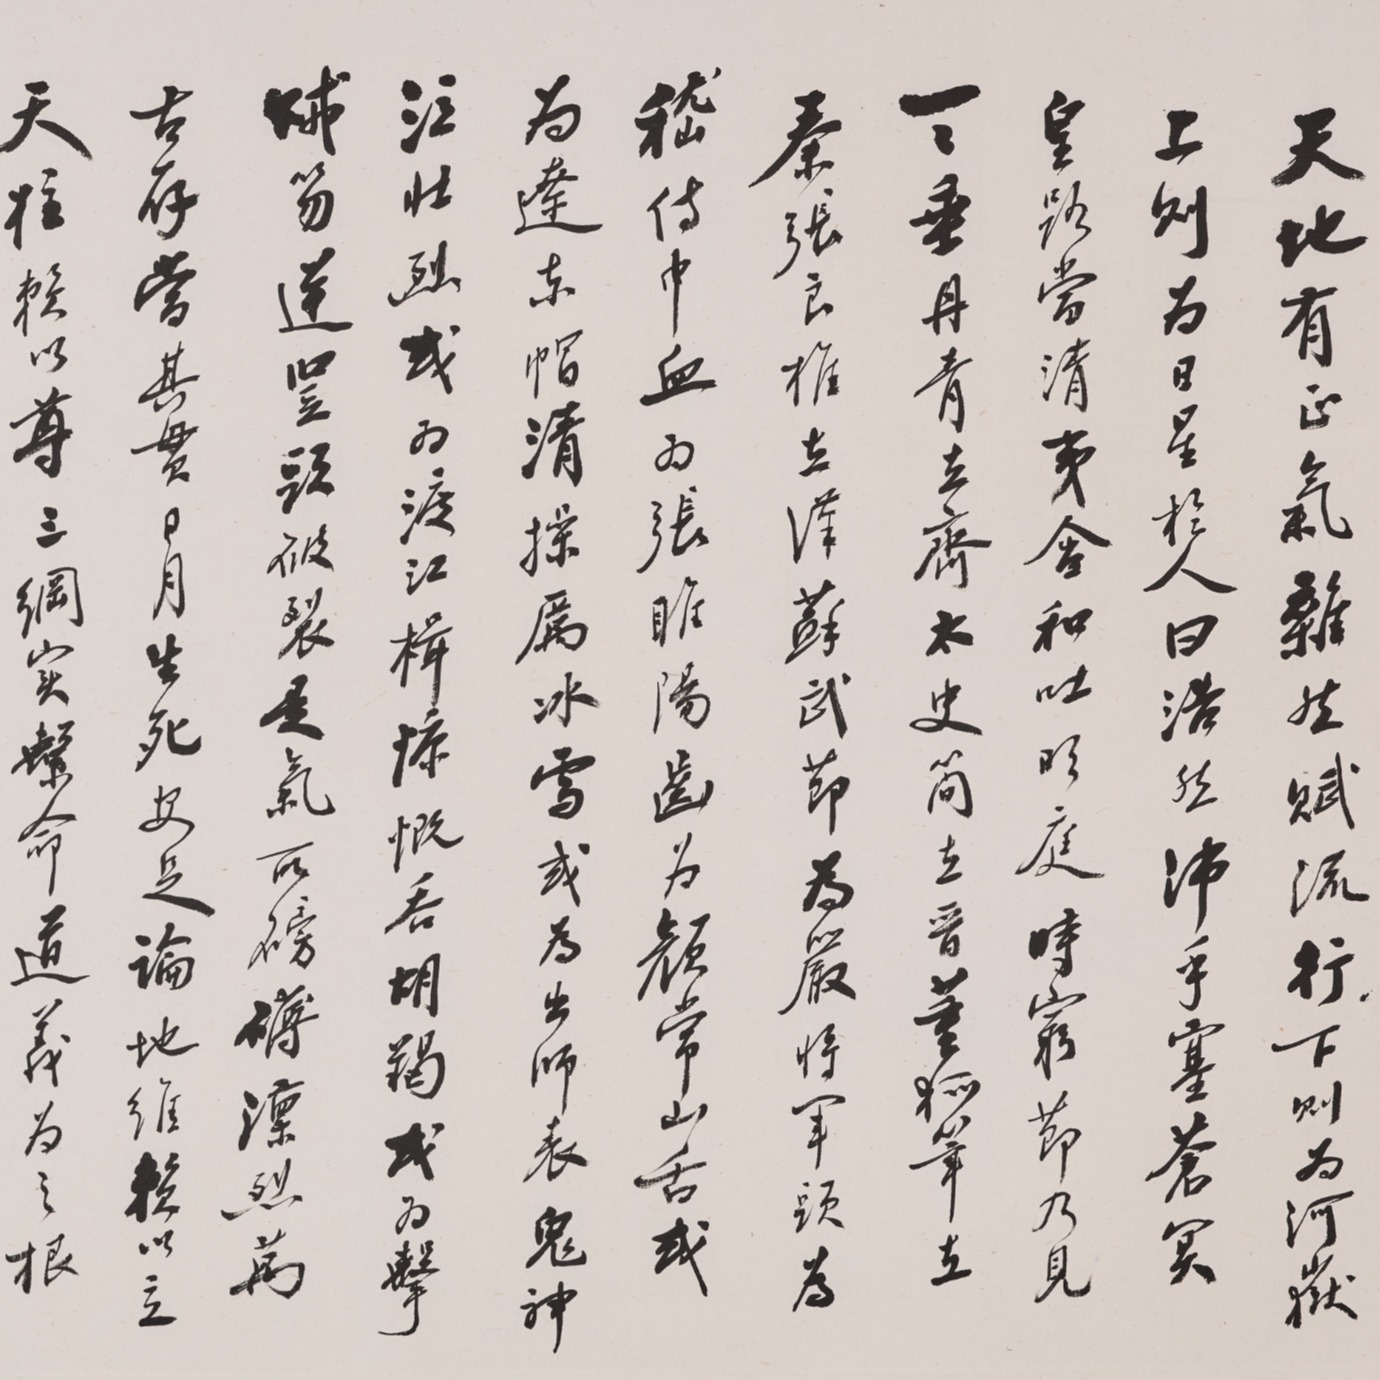 天地有正氣雜然賦流行下則為河嶽
上則為日星於人曰浩然沛乎塞蒼冥
皇路當清夷含和吐明庭時窮節乃見
一々垂丹青在齊太史簡在晉董狐筆在
秦張良椎在漢蘇武節為嚴將軍頭為
嵇侍中血為張睢陽齒為顏常山舌或
為遼東帽清操厲冰雪或為出師表鬼神
泣壯烈或為渡江楫慷慨吞胡羯或為擊
賊笏逆豎頭破裂是氣所磅礴凜烈萬
古存當其貫日月生死安足論地維賴以立
天柱賴以尊三綱實繫命道義為之根